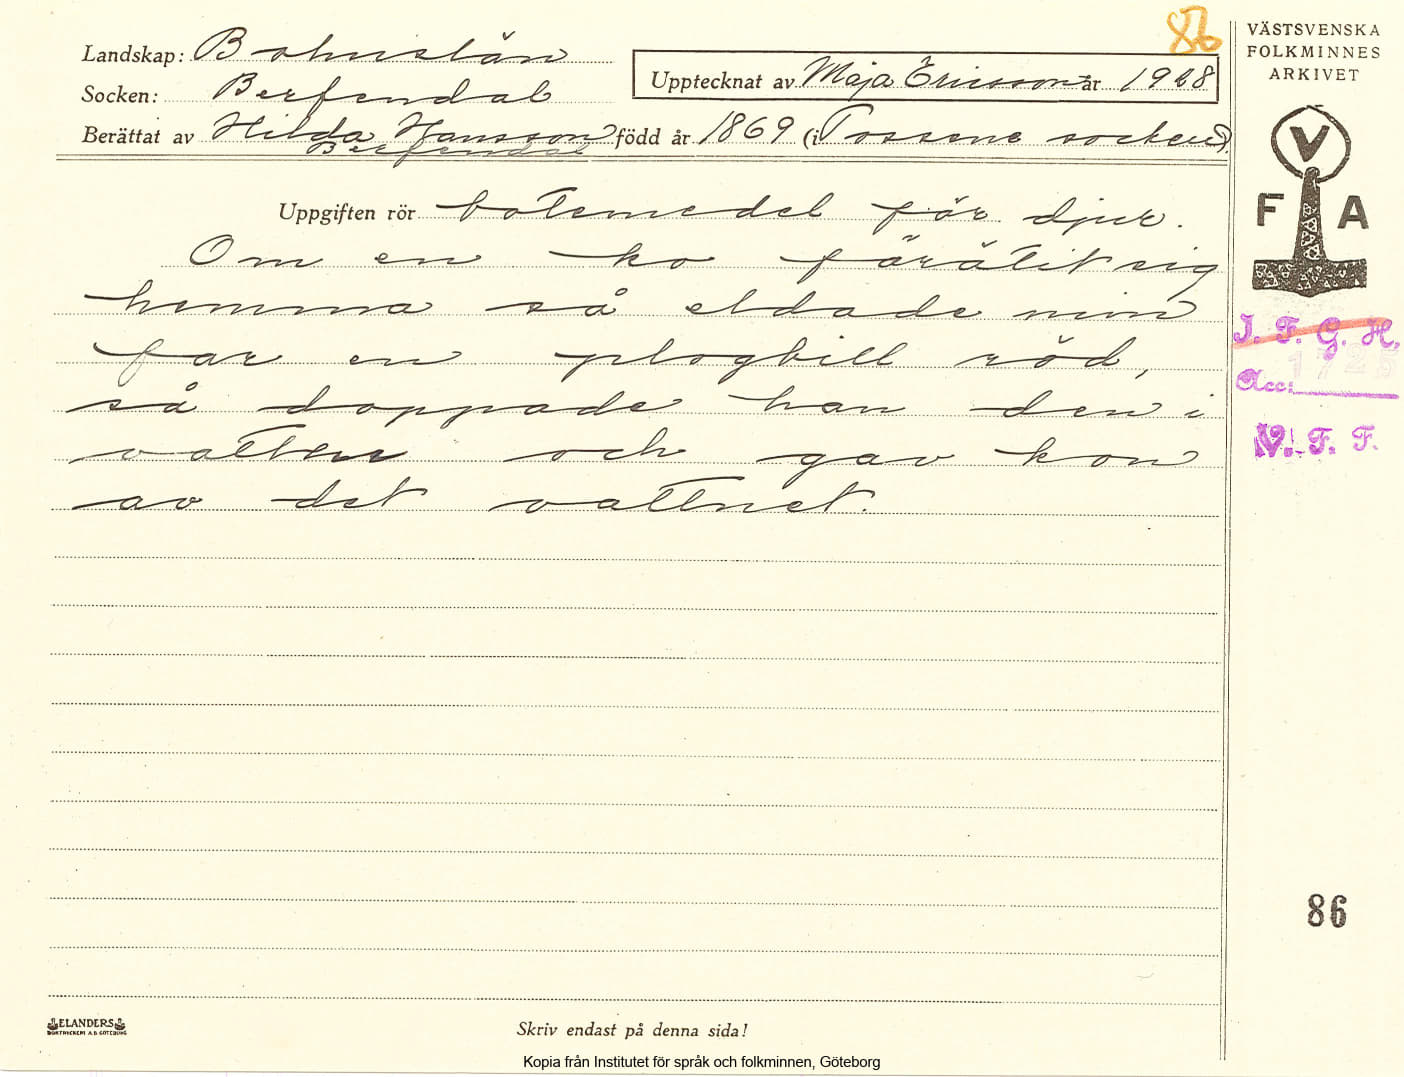 86
VÄSTSVENSKA
FOLKMINNES
ARKIVET
Landskap: Bohuslän
Upptecknat av Maja Ericsson år 1928
Socken: Berfendal
Berättat av Hilda Hansson född år 1869 (i Tossene socken).
Berfendal
Uppgiften rör botemedel för djur.
Om en ko förätit sig
hemma så eldade min
far en plogbill röd,
så doppade han den i
vatten och gav kon
av det vattnet.
V
F A
I. F. G. H.
1725
Acc:
V. F. F.
86
ELANDERS
BOKTRYCKERI A.B. GÖTEBORG
Skriv endast på denna sida!
Kopia från Institutet för språk och folkminnen, Göteborg